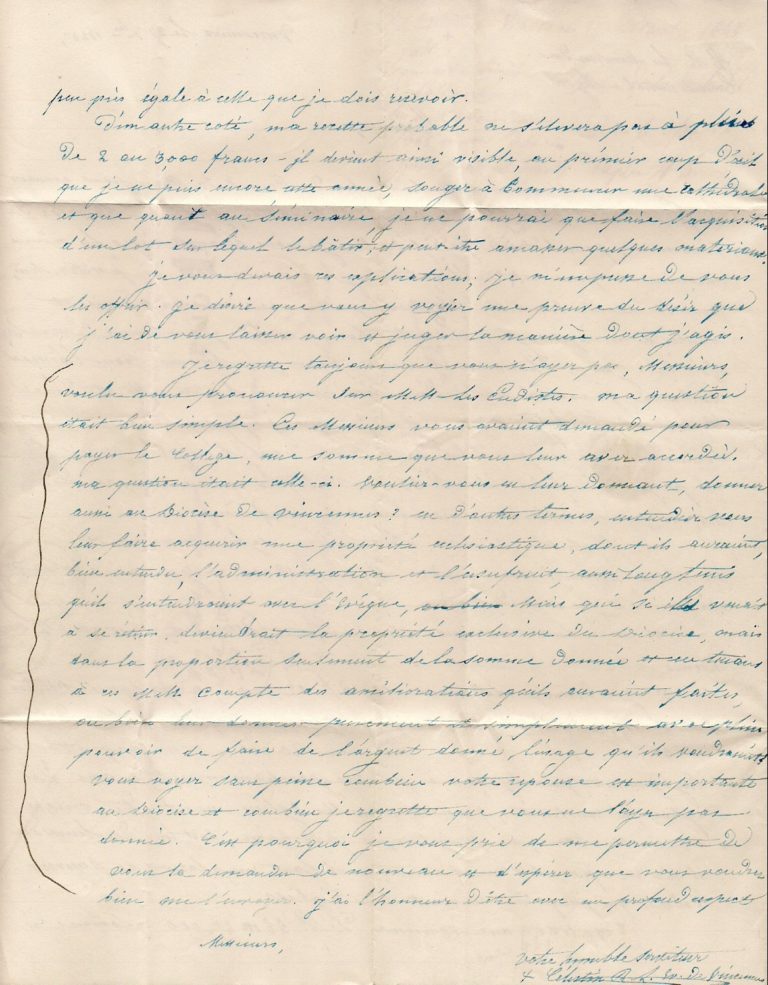 peu près égale à celle que je dois recevoir.
D'un autre coté, ma recette probable ne s'élevera pas à plus
De 2 au 3,000 francs - il devient ainsi visible, au prémier coup D'œil
que je ne puis encore cette année, songer à Commencer une cathédrale
et que quant au séminaire, je ne pourrai que faire l'acquisition
d'un lot sur lequel le bâtir, et peut être amasser quelques materiaux.
je vous devais ces explications; je m'empresse De vous
les offrir. je désire que vous y voyiez une preuve du Désir que
j'ai De vous laisser voir et juger la manière Dont j'agis.
je regrette toujours que vous n'ayez pas, Messieurs,
voulu vous prononcer sur M.M. les Eudistes. ma question
était bien simple. Ces Messieurs vous avaient demandé pour
payer le Collège, une somme que vous leur avez accordée.
ma question était celle-ci. Vouliez-vous en leur Donnant, donner
aussi au Diocèse De vincennes? en D'autres termes, entendiez vous
leur faire acquerir une propriété ecclesiastique, dont ils auraient,
bien entendu, l'administration et l'usufruit aussi longtems
qu'ils s'entendraient avec l'Evêque, ou bien Mais qui s'ils venaient
à se retirer, deviendrait la propriété exclusive du Diocèse, mais
dans la proportion seulement de la somme donnée et en tenant
à ces M.M. Compte des améliorations qu'ils auraient faites,
ou bien leur donner purement et simplement avec plein
pouvoir de faire de l'argent donné l'usage qu'ils voudraient
vous voyez sans peine combien votre reponse est importante
au Diocèse et combien je regrette que vous ne l'ayez pas
donnée. C'est pourquoi je vous prie de me permettre de
vous la demander de nouveau et d'espérer que vous voudrez
bien me l'envoyer. j'ai l'honneur D'être avec un profond respect
Messieurs,
votre humble serviteur
+ Célestin Ev. de Vincennes